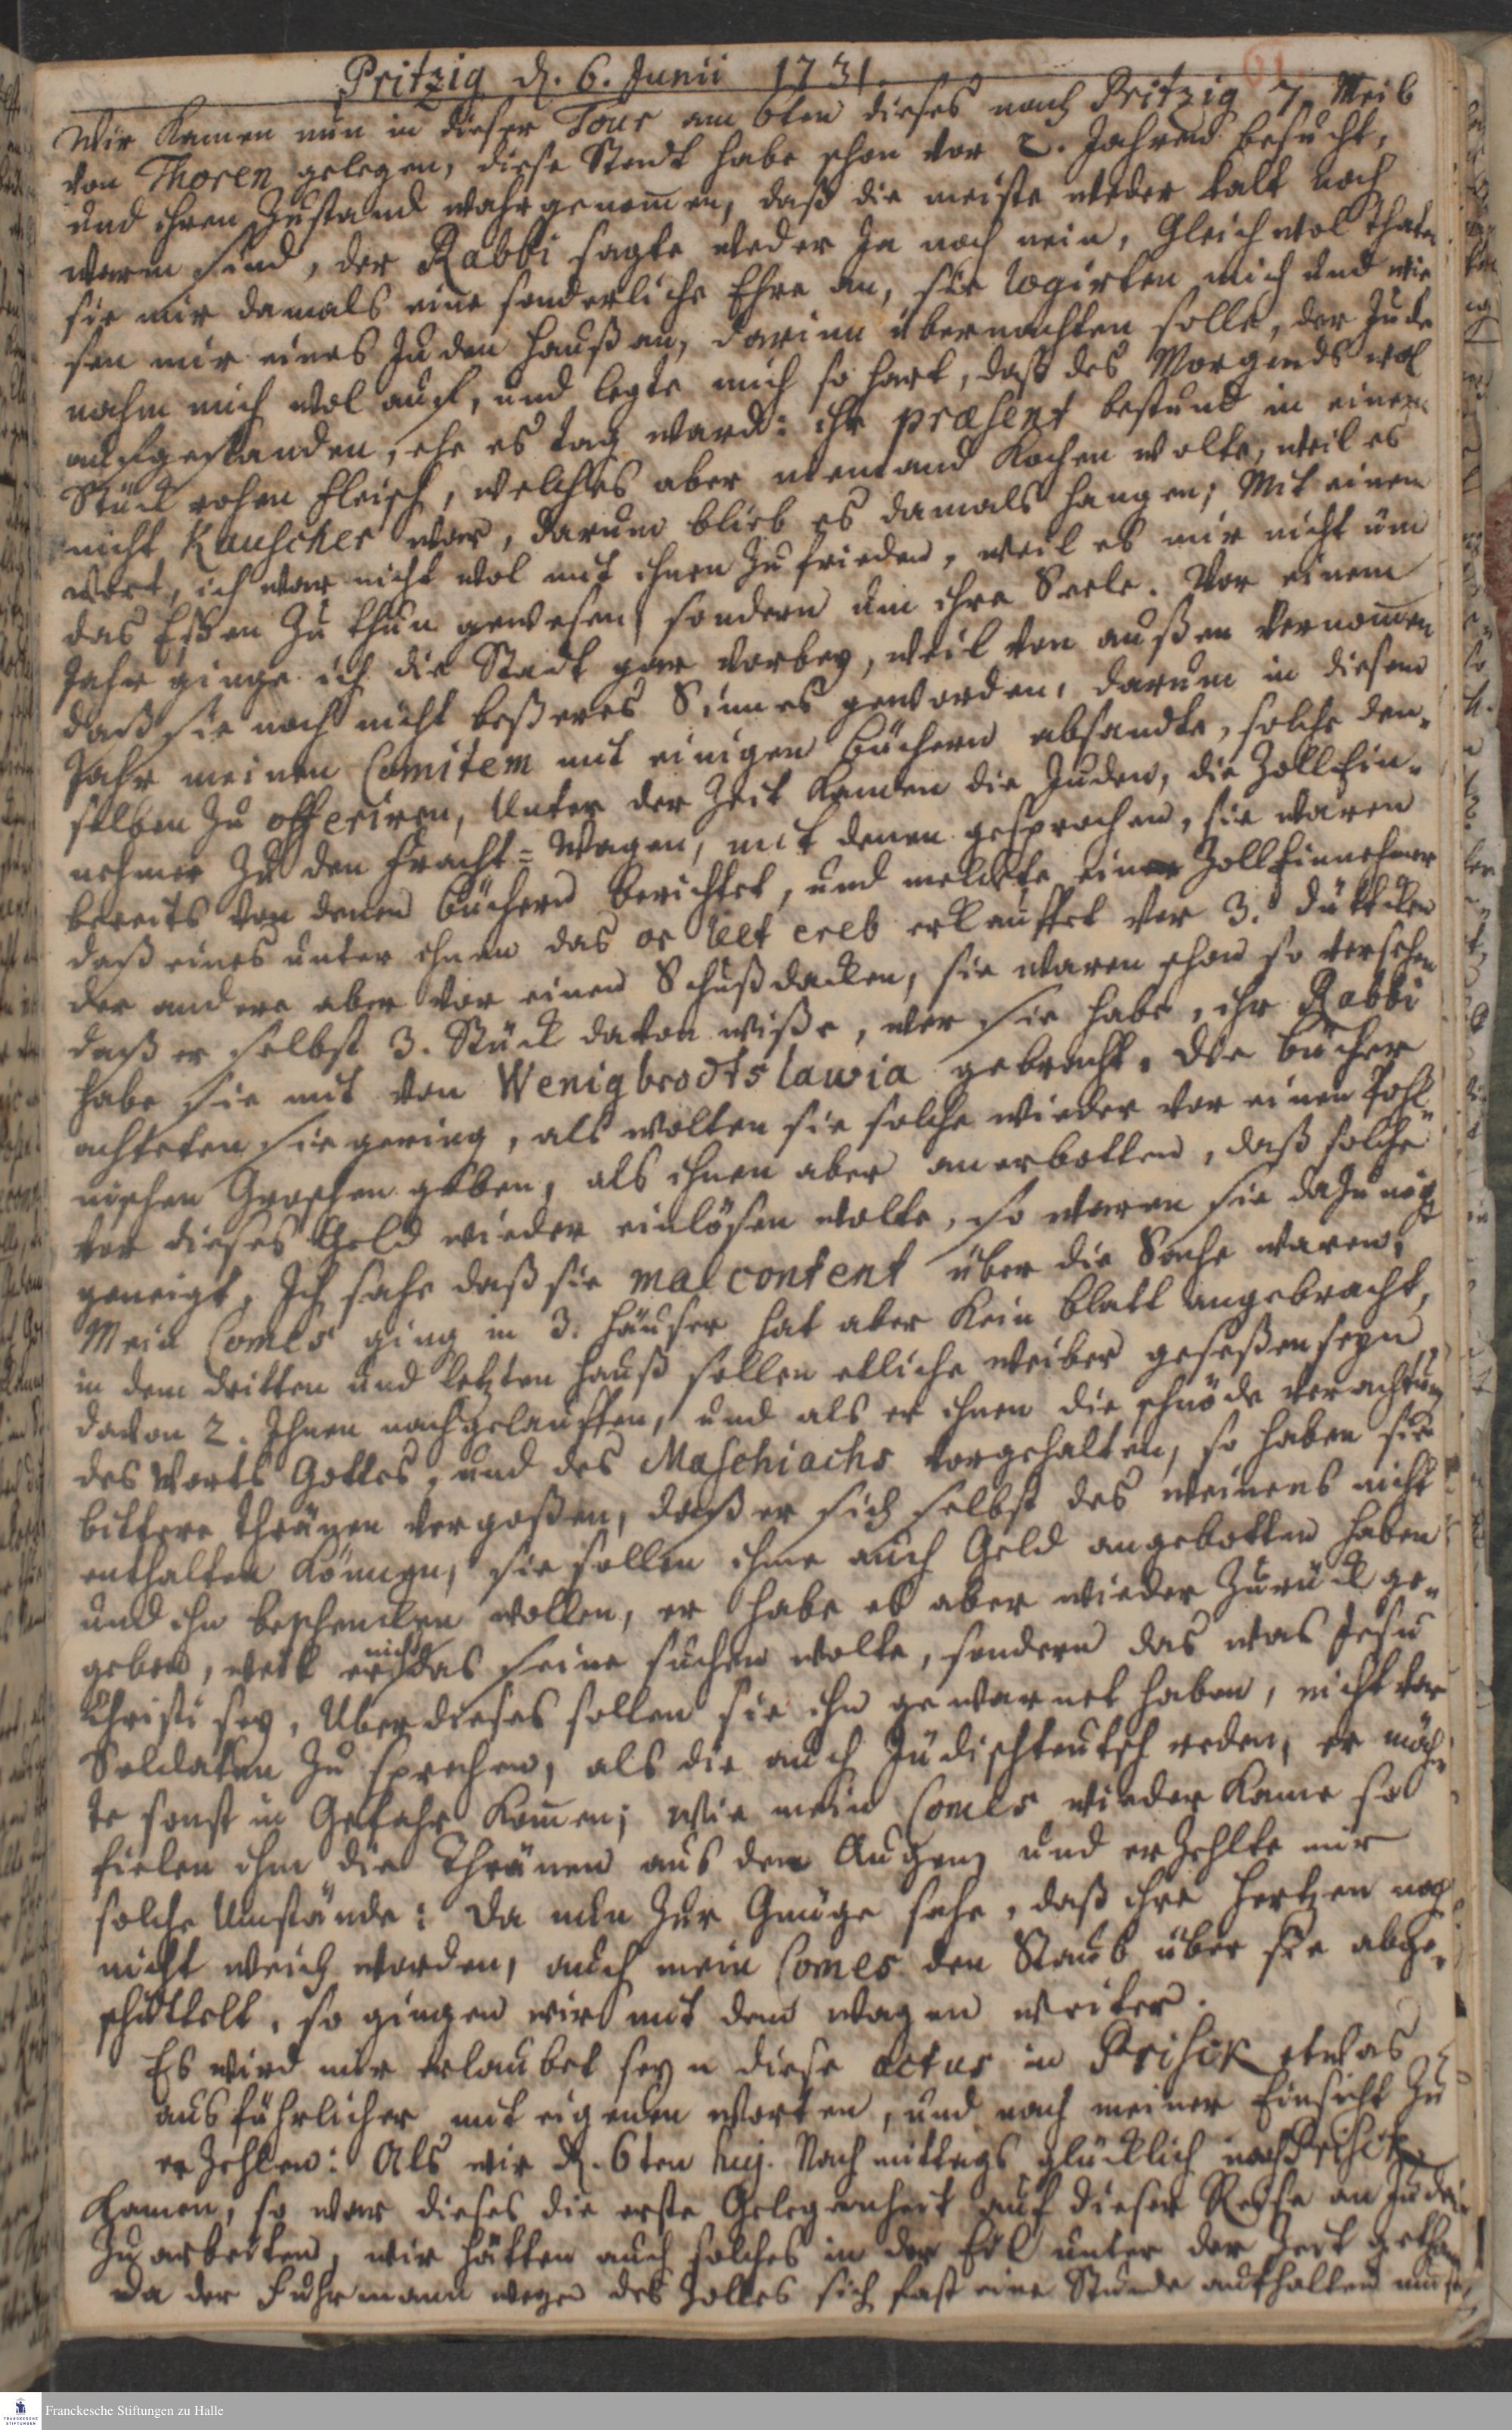 Pritzig d. 6. Junii 1731.
61
Wir kamen nun in dieser Tour am 6ten dieses nach Pritzig 7 Meil
von Thoren gelegen, diese Stadt habe schon vor 2. Jahren besucht,
und ihren Zustand wahrgenom̄en, daß die meiste weder kalt noch
warm sind, der Rabbi sagte weder Ja noch nein, Gleichwol thaten
sie mir damals eine sonderliche Ehre an, sie logirten mich und wie
sen mir eines Juden Hauß an, darinn übernachten solle, der Jude
nahm mich wol auf, und legte mich so hart, daß des Morgends wol
aufgestanden, ehe es tag ward: ihr præsent bestund in einem
Stück rohen Fleisch, welches aber niemand kochen wolte, weil es
nicht Kauscher war, darum blieb es damals hangen; Mit einem
wort, ich war nicht wol mit ihnen zu frieden, weil es mir nicht um
das Eßen zu thun gewesen, sondern um ihre Seele. Vor einem
Jahr ginge ich die Stadt gar vorbey, weil von außen vernom̄en
daß sie noch nicht beßeres Sinnes geworden, darum in diesem
Jahr meinen Comitem mit einigen Büchern absandte, solche den-
selben zu offeriren, Unter der Zeit kamen die Juden, die Zoll Ein-
nehmer zu den Fracht=Wagen, mit denen gesprochen, sie waren
bereits von denen Büchern berichtet, und meldete einer Zoll Einnehmer
daß eines unter ihnen das or leet ereb erkauffet vor 3. Düttcken
der andere aber vor einen Schußdacken, sie waren schon so versehen
daß er selbst 3. Stück davon wiße, wer sie habe, ihr Rabbi
habe sie mit von Wenigbrodtslawia gebracht. Die Bücher
achteten sie gering, als wolten sie solche wieder vor einen Pohl-
nischen Groschen geben, als ihnen aber anerbotten, daß solche
vor dieses Geld wieder einlösen wolte, so waren sie dazu nicht
geneigt, Ich sahe daß sie malcontent über die Sache waren,
Mein Comes ging in 3. Häuser hat aber kein Blatt angebracht,
in dem dritten und letzten Hauß sollen etliche Weiber geseßen seyn
davon 2. Ihnen nachgelauffen, und als er ihnen die schnöde verachtung
des Worts Gottes, und des Maschiachs vorgehalten, so haben sie
bittere thränen vergoßen, daß er sich selbst des weinens nicht
enthalten können, sie sollen ihme auch Geld angebotten haben
und ihn beschencken wollen, er habe es aber wieder zurück ge-
geben, weil er nicht das seine suchen wolte, sondern das was Jesu
Christi sey, Uberdieses sollen sie ihn gewarnet haben, nicht vor
Soldaten zu sprechen, als die auch Jüdischteutsch reden, er möch-
te sonst in Gefahr kom̄en; wie mein Comes wieder kame so
fielen ihm die Thränen aus den Augen, und erzehlte mir
solche Umstände: Da nun zur Gnüge sahe, daß ihre Hertzen noch
nicht weich worden, auch mein Comes den Staub über sie abge-
schüttelt, so gingen wir mit dem wagen weiter.
Es wird mir erlaubet seyn diese actus in Prisick etwas
ausführlicher mit eigenen worten, und nach meiner Einsicht zu
erzehlen: Als wir d. 6ten huj. Nachmittags glücklich nach Prisick
kamen, so war dieses die erste Gelegenheit auf dieser Reise an Juden
zu arbeiten, wir hätten auch solches in der Eil unter der Zeit gethan
da der Fuhrmann wegen des Zolles sich fast eine Stunde aufhalten muste,
Franckesche Stiftungen zu Halle